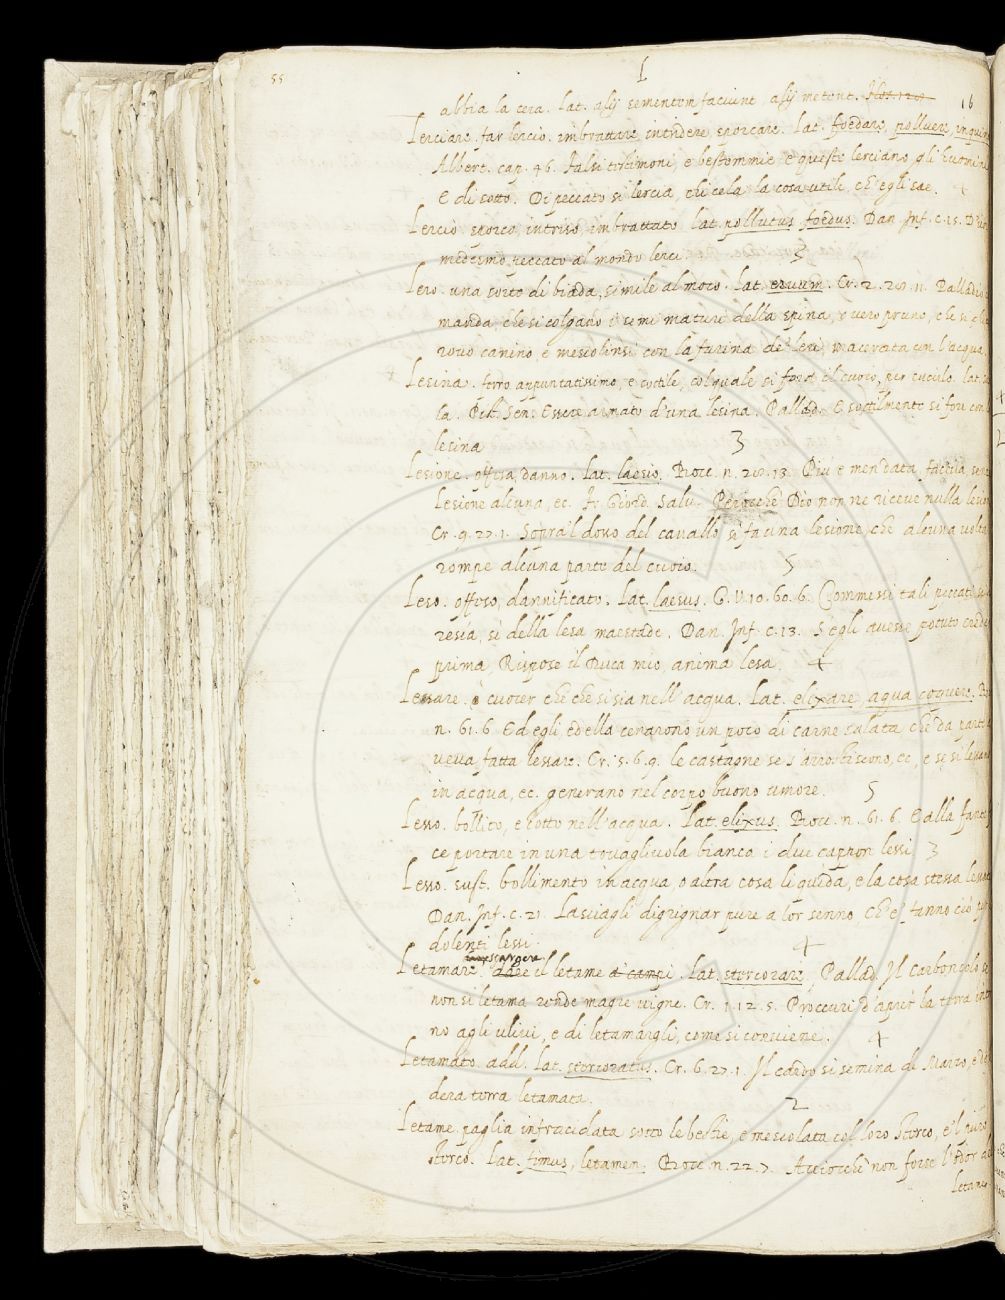 55
L
16
abbia la cera. Lat. alij sementem faciunt, alij metent.
Lerciare. far lercio. imbrattare, intridere sporcare. Lat. foedare, polluere, inquin
Albert. cap. 46. Falsi testimoni, e bestemmie e queste lerciano gli huomini
E di sotto. Di peccato si lercia, chi cela la cosa utile, ch'egli sae. 4
Lercio sporco, intriso, imbrattato lat. pollutus foedus. Dan. Inf. c. 15. D'un
medesmo peccato al mondo lerci. 5
Lero. una sorte di biada, simile al moco. Lat. eruum. Cr. 2. 28. 11. Palladio
manda, che si colgano i semi maturi della spina, o vero pruno, che si
rovo canino e mescolinsi con la farina de' leri macerata con l'acqua.
Lesina. ferro appuntatissimo, e sottile, col quale si fora il cuoio, per cucilo. lat.
la. Pist. Sen. Essere armato d'una lesina. Pallad. E sottilmente si fori con
lesina 3
Lesione. offesa, danno. Lat. laesio. Bocc. n. 28. 13. Più e men data faccia, senza
Lesione alcuna, ec. Fr. Giord. Salu. Perocche Dio non ne riceve nulla lesion
Cr. 9. 27. 1. Sopra'l dosso del cavallo si fa una lesione, che alcuna volta
rompe alcuna parte del cuoio. 5
Leso. offeso, dannificato. Lat. laesus. G. V. 10. 60. 6. Commessi tali peccati
resia, sì della lesa maestade. Dan. Inf. c. 13. S'egli avesse potuto creder
prima, Rispose il Duca mio, anima lesa. 4
Lessare. cuocer che che si sia nell'acqua. Lat. elixare, aqua coquere. Bo
n. 61. 6 Ed egli, ed ella cenarono un poco di carne salata che da parte
veva fatta lessare. Cr. 5. 6. 9. le castagne se s'arrostiscono, ec, e se si lessano
in acqua, ec. generano nel corpo buono umore. 5
Lesso. bollito, e cotto nell'acqua. Lat. elixus. Bocc. n. 61. 6. E alla fante
ce portare in una tovagliuola bianca i due cappon lessi 3
Lesso. sust. bollimento in acqua, o altra cosa liquida, e la cosa stessa lessa
Dan. Inf. c. 21. Lasciagli digrignar pure a lor senno Ch'e' fanno ciò pe
dolenti lessi. 4
spargere
Letamare. dare il letame a' campi. Lat. stercorare. Pallad. Il Carboncolo se
non si letama rende magre vigne. Cr. 1. 12. 5. Procuri d'aprir la terra intor
no agli ulivi, e di letamargli, come si conviene. 4
Letamato. add. Lat. stercoratus. Cr. 6. 27. 1. Il cardo si semina di Marzo, e
dera terra letamata. 2
Letame. paglia infracidata sotto le bestie, e mescolata col loro sterco, e'l puro
sterco. Lat. fimus, letamen. Bocc. n. 22. 7. Acciocchè non forse l'odor del
letame